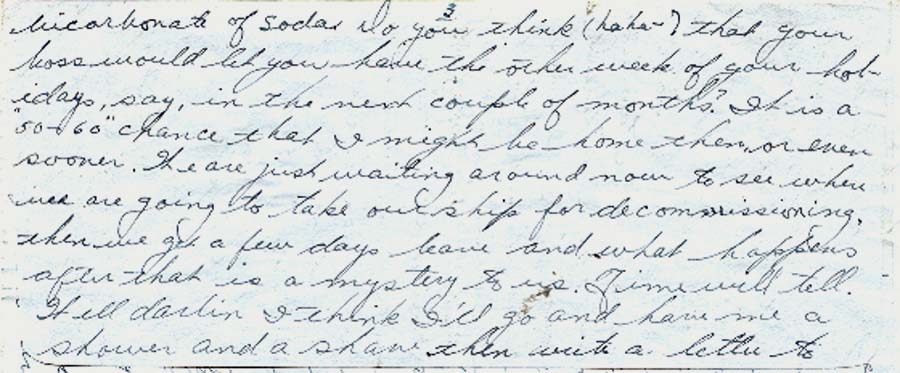 bicarbonate of soda. Do you think (haha-3) that your
boss would let you have the other week of your hol-
idays, say, in the next couple of months? It is a
"50-60" chance that I might be home then, or even
sooner. We are just waiting around now to see where
we are going to take our ship for decommissioning,
then we get a few days leave and what happens
after that is a mystery to us. Time will tell.
Well darlin I think I'll go and have me a
shower and a shave then write a letter to